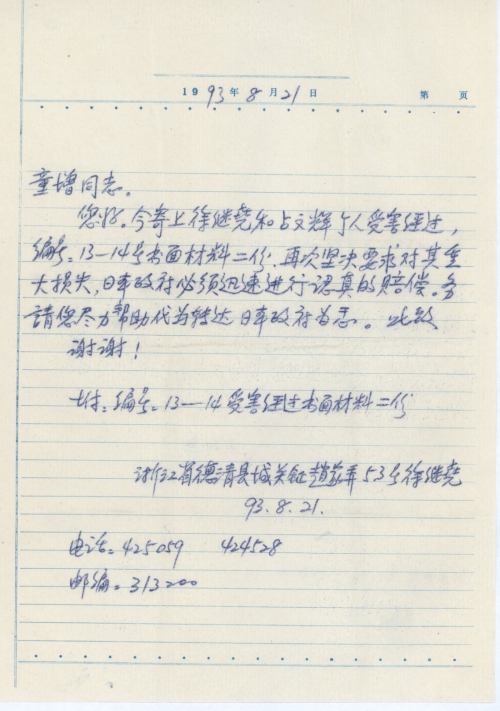 1993年8月21日 第 页
童增同志。
您好。今寄上徐继尧和占文辉个人受害经过,
编号:13-14号书面材料二份,再次坚决要求对其重
大损失,日本政府必须迅速进行认真的赔偿。务
請您尽力帮助代为转达日本政府为恙。此致
谢谢!
附:编号:13—14受害经过书面材料二份
浙江省德清县城关镇赵家弄53号徐继尧
93.8.21.
电话:425059 424528
邮编:313200